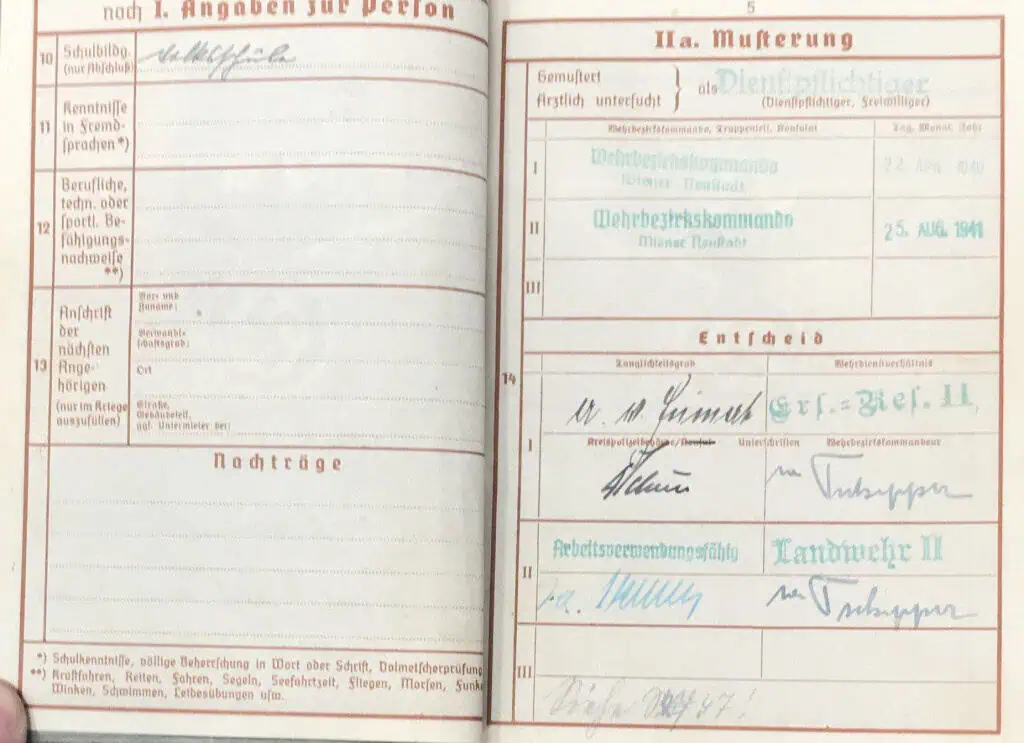 noch I. Angaben zur Person
10 Schulbildg. Volksschule
(nur Abschluß)
11 Kenntnisse
in Fremd-
sprachen *)
12 Berufliche,
techn. oder
sportl. Be-
fähigungs-
nachweise
**)
13 Anschrift
der
nächsten
Ange-
hörigen
(nur im Kriege
auszufüllen)
Vor- und
Zuname:
Verwandt-
schaftsgrad:
Ort
Straße,
Gebäudeteil,
ggf. Untermieter bei:
Nachträge
*) Schulkenntnisse, völlige Beherrschung in Wort oder Schrift, Dolmetscherprüfung
**) Kraftfahren, Reiten, Fahren, Segeln, Seefahrtzeit, Fliegen, Morsen, Funke
Winken, Schwimmen, Leibesübungen usw.
5
IIa. Musterung
Gemustert
Ärztlich untersucht } als Dienstpflichtiger
(Dienstpflichtiger, Freiwilliger)
Wehrbezirkskommando, Truppenteil, Konsulat Tag, Monat, Jahr
I Wehrbezirkskommando 22. APR. 1940
Wiener Neustadt
II Wehrbezirkskommando 25. AUG. 1941
Wiener Neustadt
III
14
Entscheid
Tauglichkeitsgrad Wehrdienstverhältnis
I Ers.=Res. II
Kreispolizeibehörde/Konsul Unterschriften Wehrbezirkskommandeur
II Arbeitsverwendungsfähig Landwehr II
III
Siehe 47!